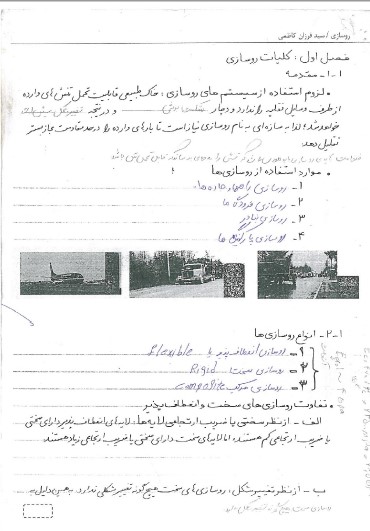 روسازی / سید فرزان کاظمی
فصل اول : کلیات روسازی
۱-۱- مقدمه
• لزوم استفاده از سیستم های روسازی : خاک طبیعی قابلیت تحمل تنش های وارده
از طرف وسایل نقلیه را ندارد و دچار و در نتیجه تغییر شکل
خواهد شد؛ لذا به سازه ای به نام روسازی نیاز است تا بارهای وارده را در حد مقاومت مجاز بستر
تقلیل دهد.
• موارد استفاده از روسازی ها :
۱- روسازی راهها و جاده ها
۲- روسازی فرودگاه ها
۳- روسازی بنادر
۴- روسازی پارکینگ ها
۱-۲- انواع روسازی ها
۱- روسازی انعطاف پذیر یا Flexible
۲- روسازی سخت Rigid
۳- روسازی مرکب Composite
• تفاوت روسازی های سخت و انعطاف پذیر
الف - از نظر سختی یا ضریب ارتجاعی لایه ها : لایه های انعطاف پذیر دارای سختی
یا ضریب ارتجاعی کم هستند، اما لایه های سخت دارای سختی یا ضریب ارتجاعی زیاد هستند
ب - از نظر تغییر شکل : روسازی های سخت هیچ گونه تغییر شکلی ندارد. به همین دلیل به